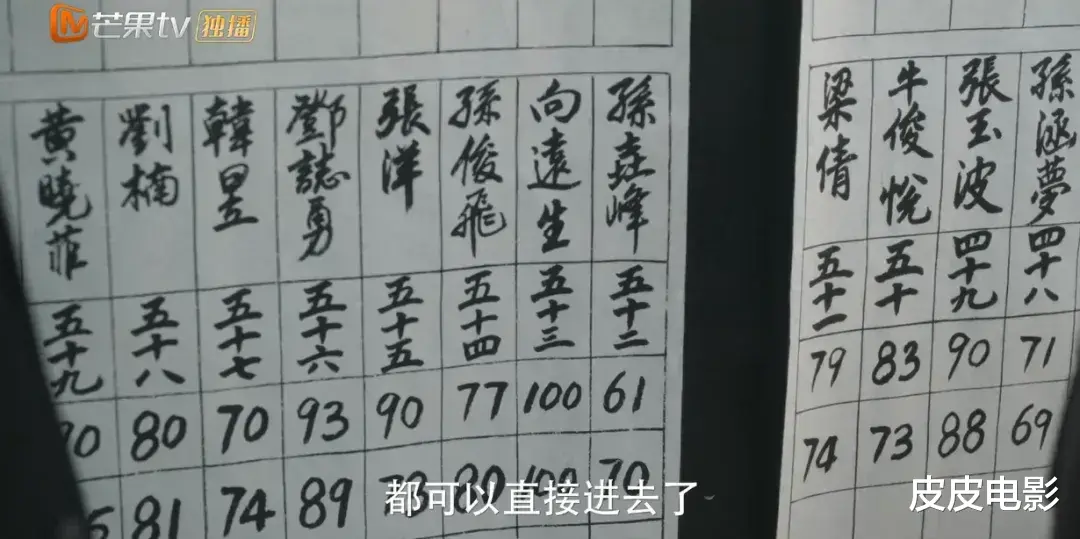 芒果tv 独播
孫涵夢
四十八
71
69
張玉波
四十九
90
88
牛俊悅
五十
83
73
梁倩
五十一
79
74
孫垚峰
五十二
61
70
向遠生
五十三
100
100
孫俊飛
五十四
77
80
張洋
五十五
90
鄧誌勇
五十六
93
89
韓昱
五十七
70
74
劉楠
五十八
80
81
黃曉菲
五十九
都可以直接进去了
皮皮电影